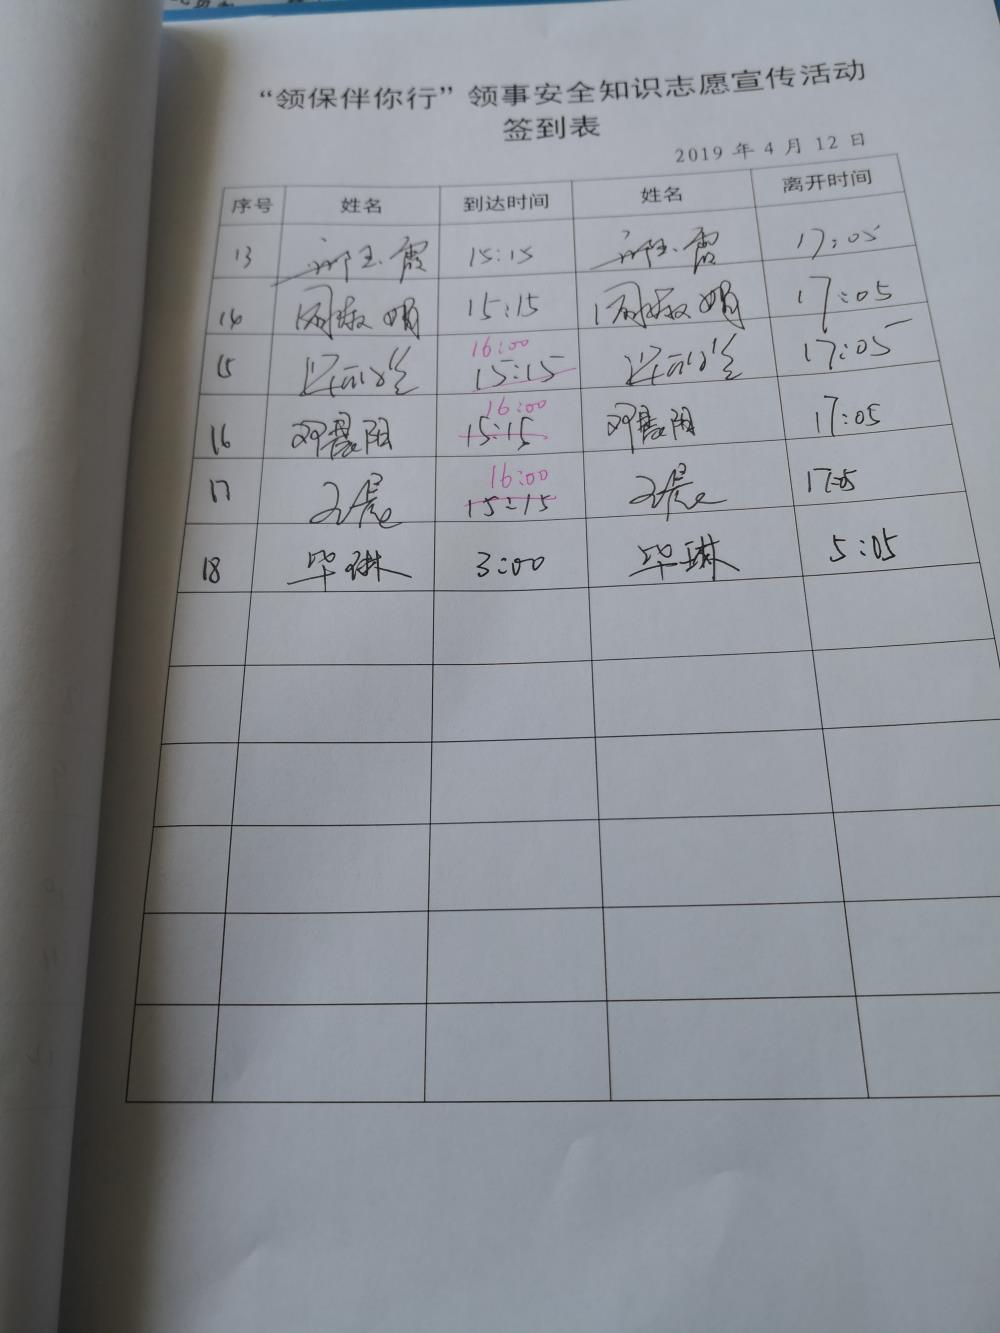 “领保伴你行”领事安全知识志愿宣传活动
签到表
2019 年 4 月 12 日
序号 姓名 到达时间 姓名 离开时间
13 15:15 17:05
14 周淑娟 15:15 周淑娟 17:05
16:00
15 15:15 17:05
16:00
16 邓晨阳 15:15 邓晨阳 17:05
16:00
17 15:15 17:05
18 毕琳 3:00 毕琳 5:05